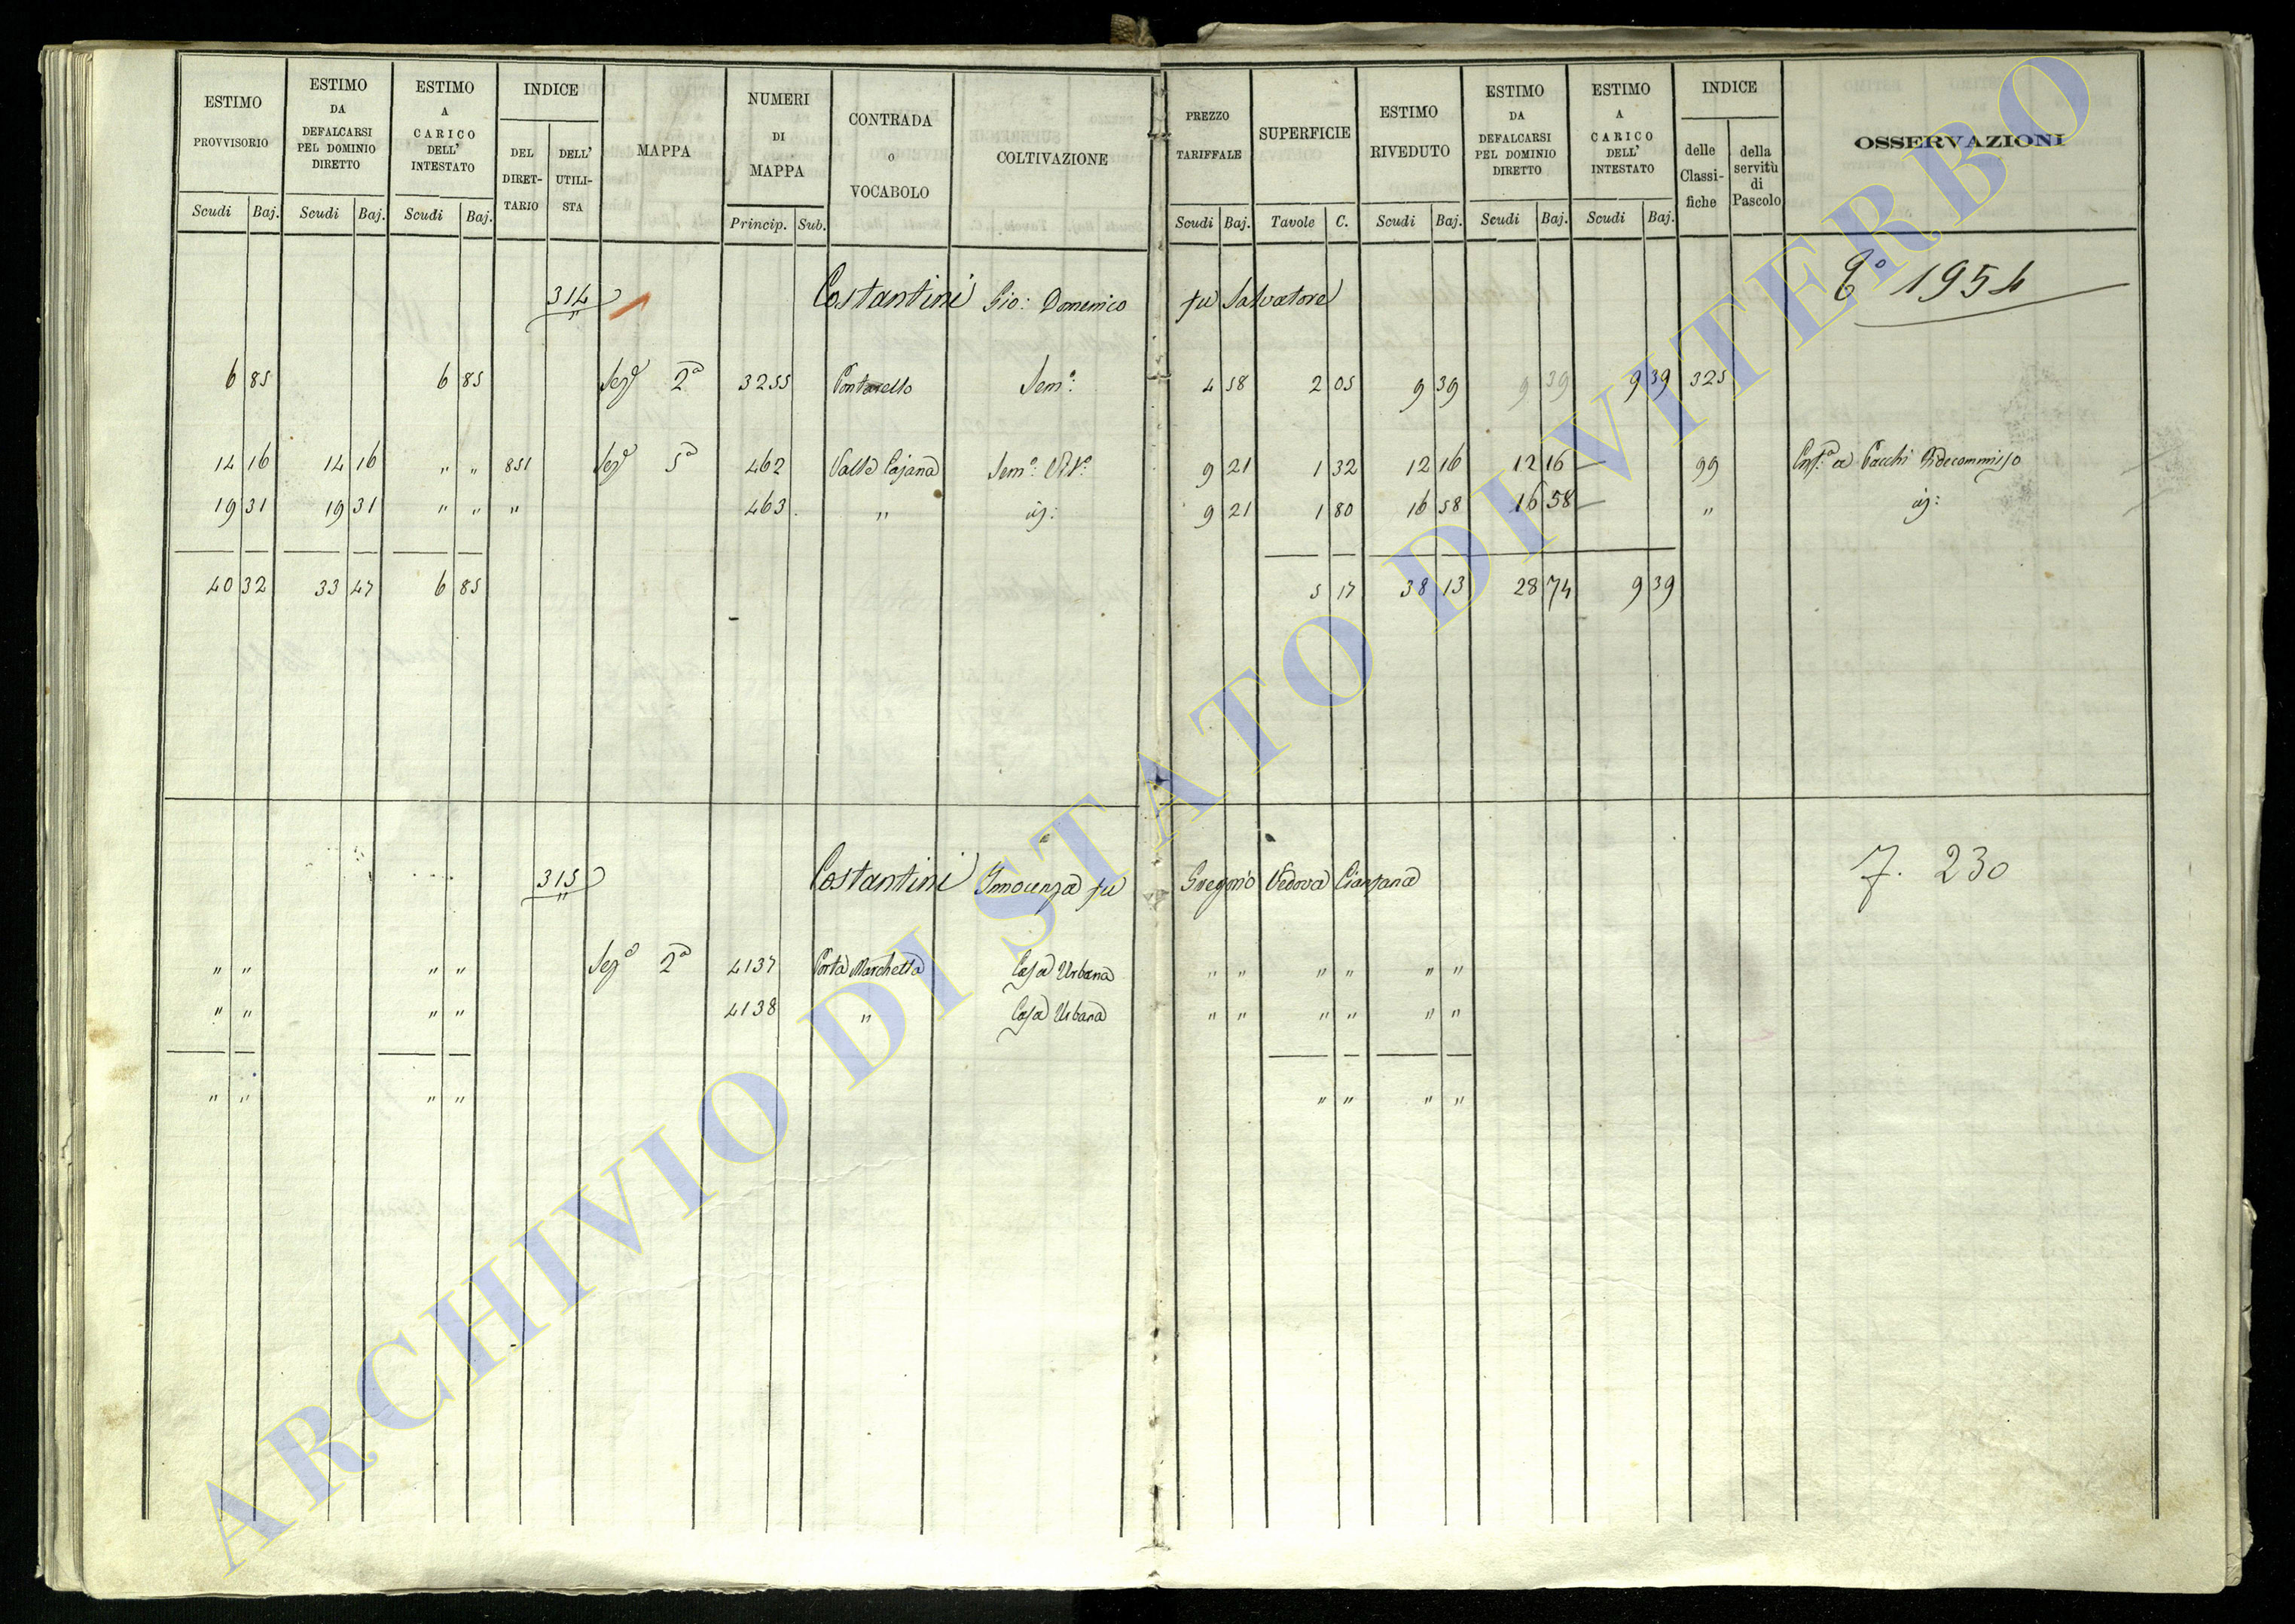 ESTIMO PROVVISORIO Scudi Baj.
ESTIMO DA DEFALCARSI PEL DOMINIO DIRETTO Scudi Baj.
ESTIMO A CARICO DELL' INTESTATO Scudi Baj.
INDICE DEL DIRET-TARIO DELL' UTILI-STA
MAPPA
NUMERI DI MAPPA Princip. Sub.
CONTRADA o VOCABOLO
COLTIVAZIONE
PREZZO TARIFFALE Scudi Baj.
SUPERFICIE Tavole C.
ESTIMO RIVEDUTO Scudi Baj.
ESTIMO DA DEFALCARSI PEL DOMINIO DIRETTO Scudi Baj.
ESTIMO A CARICO DELL' INTESTATO Scudi Baj.
INDICE delle Classi-fiche della servitù di Pascolo
OSSERVAZIONI
314 Costantini Gio: Domenico fu Salvatore 1954
6 85 6 85 Sezᵉ 2ᵃ 3255 Pontarello Semᵒ: 4 58 2 05 9 39 9 39 9 39 325
14 16 14 16 " " 851 Sezᵉ 5ᵃ 462 Valle Cajana Semᵒ: Vitᵒ: 9 21 1 32 12 16 12 16 — 99 a Pacchi Fidecommisso
19 31 19 31 " " " 463. " id: 9 21 1 80 16 58 16 58 — " id:
40 32 33 47 6 85 5 17 38 13 28 74 9 39
315 Costantini Innocenza fu Gregorio Vedova Cianfana 7. 230
" " " " Sezᵉ 2ᵃ 4137 Porta Marchetta Casa Urbana " " " " " "
" " " " 4138 " Casa Urbana " " " " " "
" " " " " " " "
ARCHIVIO DI STATO DI VITERBO